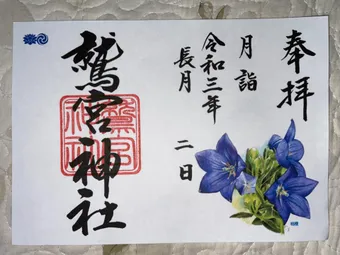 奉拝
月詣
令和三年
長月 二日
鷲宮神社